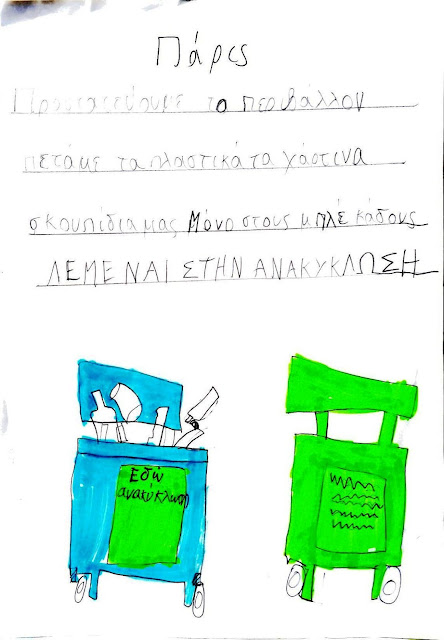 Πάρις
Προστατεύουμε το περιβάλλον
πετάμε τα πλαστικά τα χάρτινα
σκουπίδια μας Μόνο στους μπλέ κάδους
ΛΕΜΕ ΝΑΙ ΣΤΗΝ ΑΝΑΚΥΚΛΩΣΗ
Εδώ
ανακύκλωση